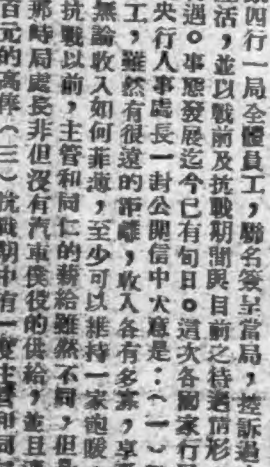 四行一局全體員工，聯名簽呈當局，控訴過
活，並以戰前及抗戰期間與目前之待遇情形
遇。事態發展迄今已有旬日。這次各國家行
央行人事處長一封公開信中大意是：（一）
工，雖然有很遠的距離，收入各有多寡，享
無論收入如何菲薄，至少可以維持一家飽暖
抗戰以前，主管和同仁的薪給雖然不同，但
那時局處長非但沒有汽車僕役的供給，並且
百元的高俸（三）抗戰期中有一雙主管和同